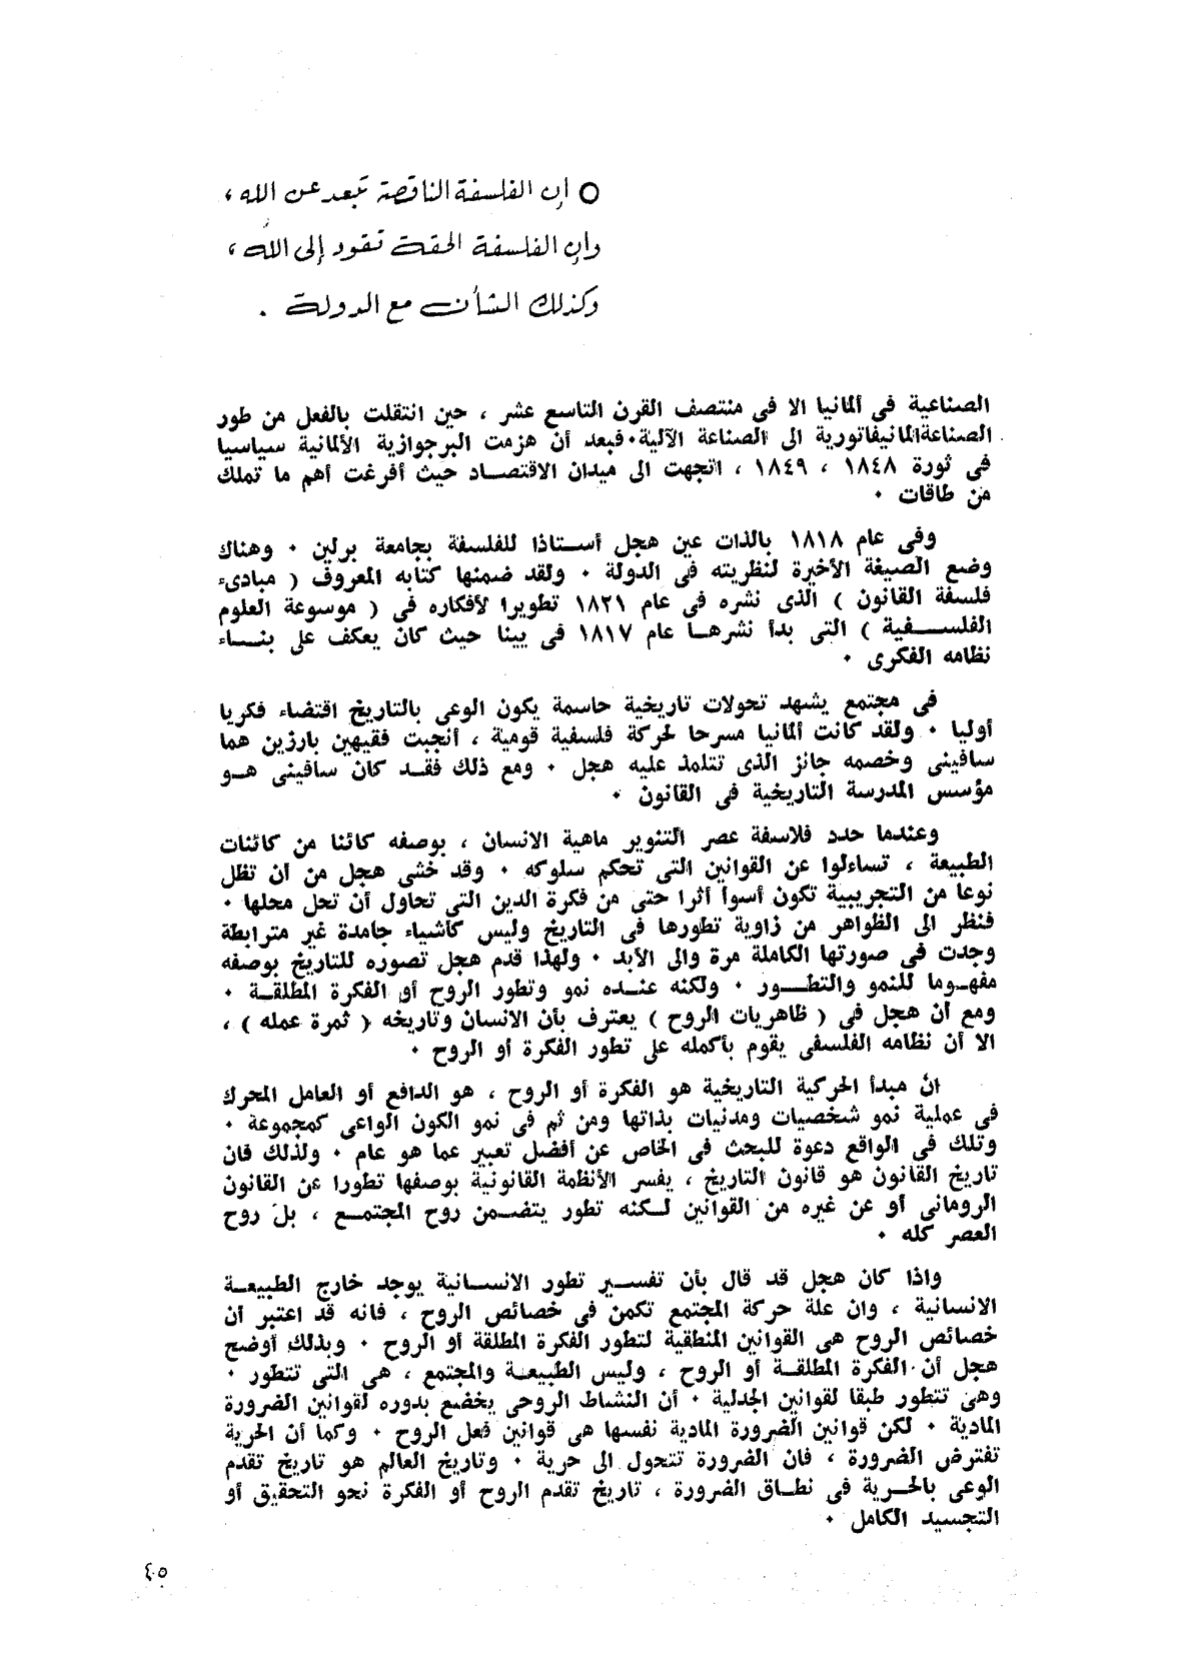 ○ إن الفلسفة الناقصة تبعد عن الله ،
وإن الفلسفة الحقة تقود إلى الله ،
وكذلك الشأن مع الدولة .
الصناعية فى ألمانيا الا فى منتصف القرن التاسع عشر ، حين انتقلت بالفعل من طور
الصناعة المانيفاتورية الى الصناعة الآلية . فبعد أن هزمت البرجوازية الألمانية سياسيا
فى ثورة ١٨٤٨ ، ١٨٤٩ ، اتجهت الى ميدان الاقتصاد حيث أفرغت أهم ما تملك
من طاقات .
وفى عام ١٨١٨ بالذات عين هجل أستاذا للفلسفة بجامعة برلين . وهناك
وضع الصيغة الأخيرة لنظريته فى الدولة . ولقد ضمنها كتابه المعروف ( مبادىء
فلسفة القانون ) الذى نشره فى عام ١٨٢١ تطويرا لأفكاره فى ( موسوعة العلوم
الفلسفية ) التى بدأ نشرها عام ١٨١٧ فى يينا حيث كان يعكف على بناء
نظامه الفكرى .
فى مجتمع يشهد تحولات تاريخية حاسمة يكون الوعى بالتاريخ اقتضاء فكريا
أوليا . ولقد كانت ألمانيا مسرحا لحركة فلسفية قومية ، أنجبت فقيهين بارزين هما
سافينى وخصمه جانز الذى تتلمذ عليه هجل . ومع ذلك فقد كان سافينى هو
مؤسس المدرسة التاريخية فى القانون .
وعندما حدد فلاسفة عصر التنوير ماهية الانسان ، بوصفه كائنا من كائنات
الطبيعة ، تساءلوا عن القوانين التى تحكم سلوكه . وقد خشى هجل من أن تظل
نوعا من التجريبية تكون أسوأ أثرا حتى من فكرة الدين التى تحاول أن تحل محلها .
فنظر الى الظواهر من زاوية تطورها فى التاريخ وليس كأشياء جامدة غير مترابطة
وجدت فى صورتها الكاملة مرة والى الأبد . ولهذا قدم هجل تصوره للتاريخ بوصفه
مفهوما للنمو والتطور . ولكنه عنده نمو وتطور الروح أو الفكرة المطلقة .
ومع أن هجل فى ( ظاهريات الروح ) يعترف بأن الانسان وتاريخه ( ثمرة عمله ) ،
الا أن نظامه الفلسفى يقوم بأكمله على تطور الفكرة أو الروح .
ان مبدأ الحركية التاريخية هو الفكرة أو الروح ، هو الدافع أو العامل المحرك
فى عملية نمو شخصيات ومدنيات بذاتها ومن ثم فى نمو الكون الواعى كمجموعة .
وتلك فى الواقع دعوة للبحث فى الخاص عن أفضل تعبير عما هو عام . ولذلك فان
تاريخ القانون هو قانون التاريخ ، يفسر الأنظمة القانونية بوصفها تطورا عن القانون
الرومانى أو عن غيره من القوانين لكنه تطور يتضمن روح المجتمع ، بل روح
العصر كله .
واذا كان هجل قد قال بأن تفسير تطور الانسانية يوجد خارج الطبيعة
الانسانية ، وان علة حركة المجتمع تكمن فى خصائص الروح ، فانه قد اعتبر أن
خصائص الروح هى القوانين المنطقية لتطور الفكرة المطلقة أو الروح . وبذلك أوضح
هجل أن الفكرة المطلقة أو الروح ، وليس الطبيعة والمجتمع ، هى التى تتطور .
وهى تتطور طبقا لقوانين الجدلية . أن النشاط الروحى يخضع بدوره لقوانين الضرورة
المادية . لكن قوانين الضرورة المادية نفسها هى قوانين فعل الروح . وكما أن الحرية
تفترض الضرورة ، فان الضرورة تتحول الى حرية . وتاريخ العالم هو تاريخ تقدم
الوعى بالحرية فى نطاق الضرورة ، تاريخ تقدم الروح أو الفكرة نحو التحقيق أو
التجسيد الكامل .
٤٥